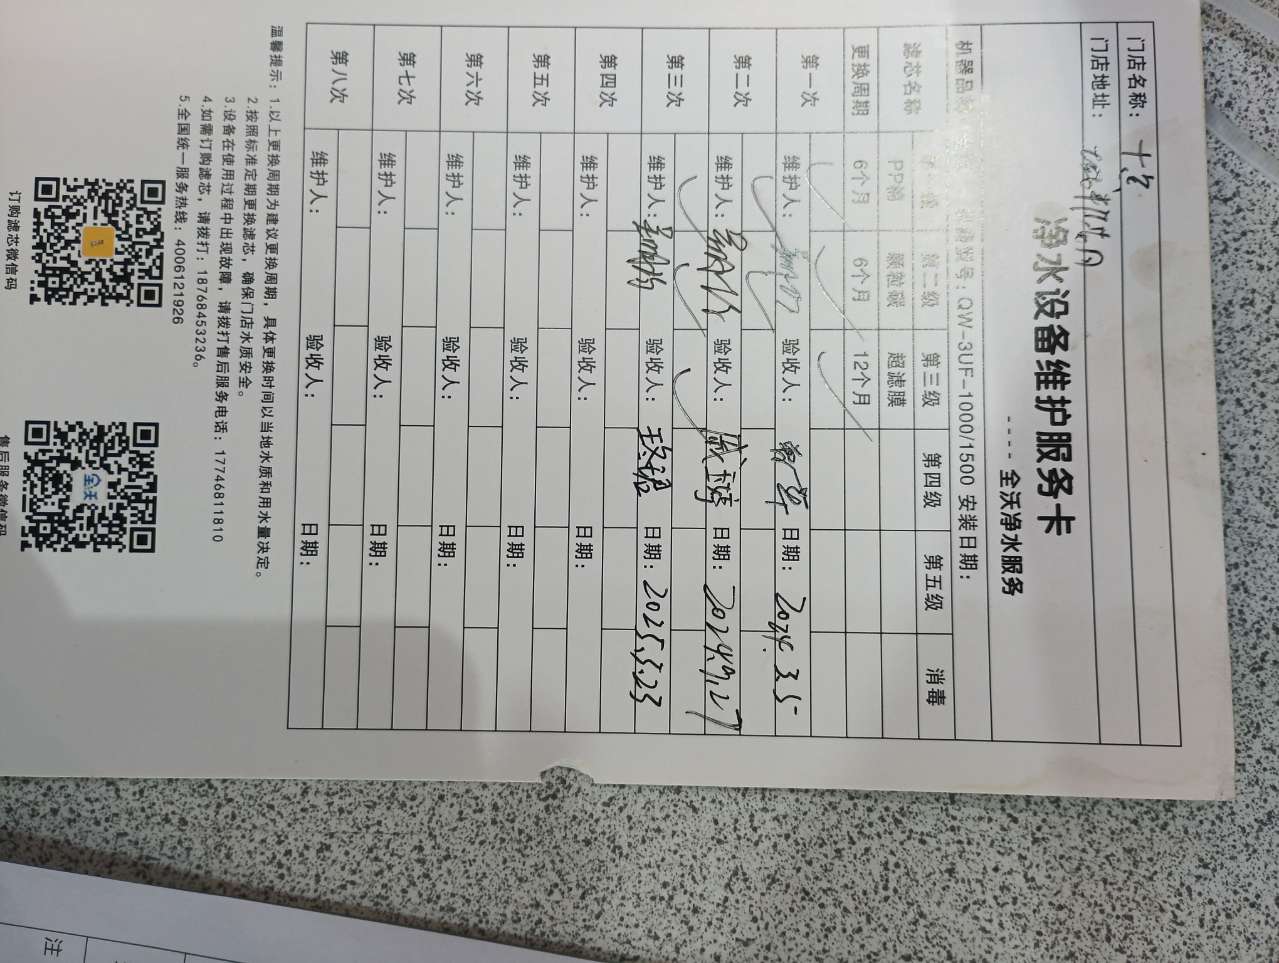 净水设备维护服务卡
---- 全沃净水服务
门店名称：
门店地址：
机器品 型号：QW-3UF-1000/1500 安装日期：
滤芯名称 第二级 第三级 第四级 第五级 消毒
PP棉 颗粒碳 超滤膜
更换周期 6个月 6个月 12个月
第一次
维护人： 验收人： 日期：2024.3.5
第二次
维护人： 验收人： 日期：2024.9.27
第三次
维护人： 验收人： 日期：2025.3.23
第四次
维护人： 验收人： 日期：
第五次
维护人： 验收人： 日期：
第六次
维护人： 验收人： 日期：
第七次
维护人： 验收人： 日期：
第八次
维护人： 验收人： 日期：
温馨提示：1.以上更换周期为建议更换周期，具体更换时间以当地水质和用水量决定。
2.按照标准定期更换滤芯，确保门店水质安全。
3.设备在使用过程中出现故障，请拨打售后服务电话：17746811810
4.如需订购滤芯，请拨打：18768453236。
5.全国统一服务热线：4006121926
全沃
订购滤芯微信码
售后服务微信码
注